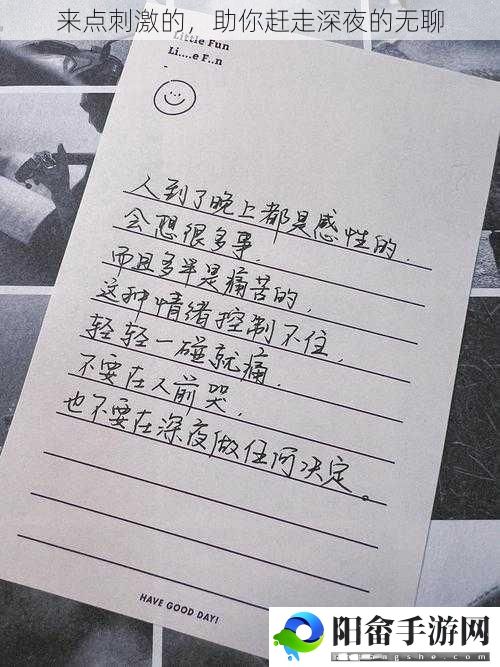 来点刺激的，助你赶走深夜的无聊
Little Fun
Li....e F..n
人到了晚上都是感性的.
会想很多事.
而且多半是痛苦的,
这种情绪控制不住,
轻轻一碰就痛.
不要在人前哭.
也不要在深夜做任何决定。
HAVE GOOD DAY!
阳畲手游网